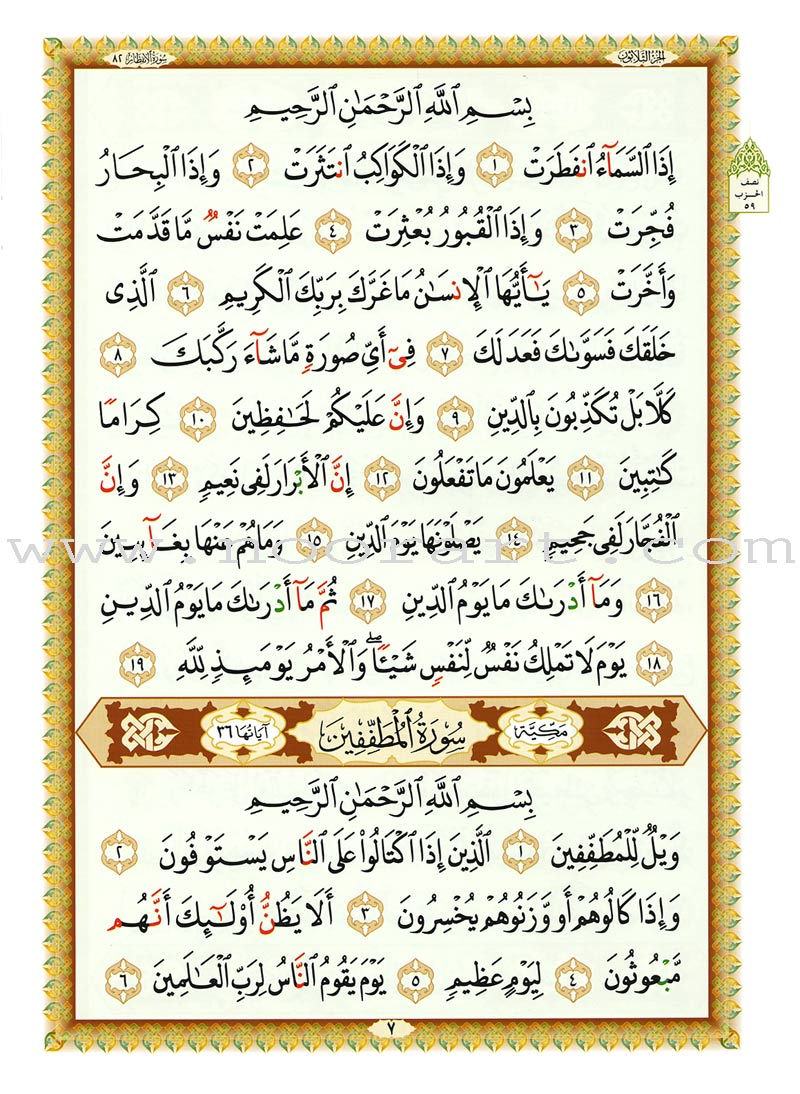 سُورَةُ الِانفِطَارِ ٨٢
الجُزْءُ الثَّلَاثُونَ
بِسْمِ ٱللَّهِ ٱلرَّحْمَٰنِ ٱلرَّحِيمِ
إِذَا ٱلسَّمَآءُ ٱنفَطَرَتْ ١ وَإِذَا ٱلْكَوَاكِبُ ٱنتَثَرَتْ ٢ وَإِذَا ٱلْبِحَارُ
نصف
الحزب
٥٩
فُجِّرَتْ ٣ وَإِذَا ٱلْقُبُورُ بُعْثِرَتْ ٤ عَلِمَتْ نَفْسٌ مَّا قَدَّمَتْ
وَأَخَّرَتْ ٥ يَٰٓأَيُّهَا ٱلْإِنسَٰنُ مَا غَرَّكَ بِرَبِّكَ ٱلْكَرِيمِ ٦ ٱلَّذِى
خَلَقَكَ فَسَوَّىٰكَ فَعَدَلَكَ ٧ فِىٓ أَىِّ صُورَةٍ مَّا شَآءَ رَكَّبَكَ ٨
كَلَّا بَلْ تُكَذِّبُونَ بِٱلدِّينِ ٩ وَإِنَّ عَلَيْكُمْ لَحَٰفِظِينَ ١٠ كِرَامًا
كَٰتِبِينَ ١١ يَعْلَمُونَ مَا تَفْعَلُونَ ١٢ إِنَّ ٱلْأَبْرَارَ لَفِى نَعِيمٍ ١٣ وَإِنَّ
ٱلْفُجَّارَ لَفِى جَحِيمٍ ١٤ يَصْلَوْنَهَا يَوْمَ ٱلدِّينِ ١٥ وَمَا هُمْ عَنْهَا بِغَآئِبِينَ
www.noorart.com
١٦ وَمَآ أَدْرَىٰكَ مَا يَوْمُ ٱلدِّينِ ١٧ ثُمَّ مَآ أَدْرَىٰكَ مَا يَوْمُ ٱلدِّينِ
١٨ يَوْمَ لَا تَمْلِكُ نَفْسٌ لِّنَفْسٍ شَيْـًٔا ۖ وَٱلْأَمْرُ يَوْمَئِذٍ لِّلَّهِ ١٩
مَكِّيَّة سُورَةُ الْمُطَفِّفِينَ آيَاتُهَا ٣٦
بِسْمِ ٱللَّهِ ٱلرَّحْمَٰنِ ٱلرَّحِيمِ
وَيْلٌ لِّلْمُطَفِّفِينَ ١ ٱلَّذِينَ إِذَا ٱكْتَالُوا۟ عَلَى ٱلنَّاسِ يَسْتَوْفُونَ ٢
وَإِذَا كَالُوهُمْ أَو وَّزَنُوهُمْ يُخْسِرُونَ ٣ أَلَا يَظُنُّ أُو۟لَٰٓئِكَ أَنَّهُم
مَّبْعُوثُونَ ٤ لِيَوْمٍ عَظِيمٍ ٥ يَوْمَ يَقُومُ ٱلنَّاسُ لِرَبِّ ٱلْعَٰلَمِينَ ٦
٧